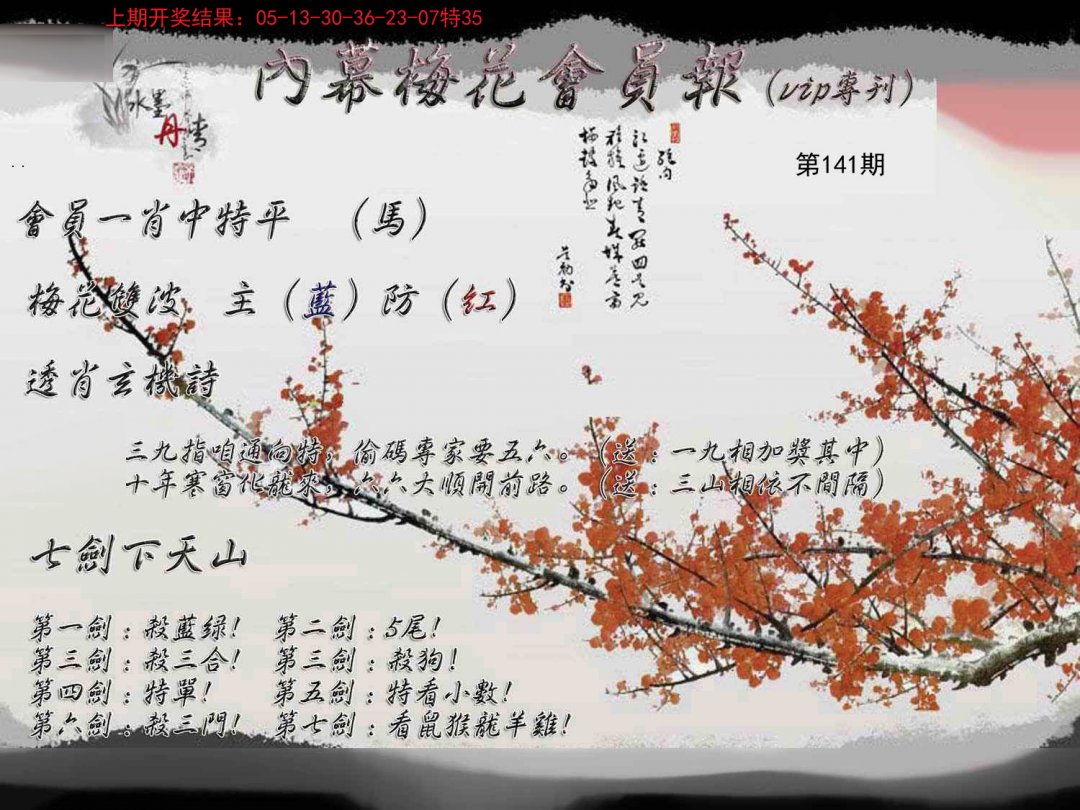 上期开奖结果：05-13-30-36-23-07特35
內幕梅花會員報（vip專刊）
水墨丹青
第141期
..
會員一肖中特平 （馬）
梅花雙波 主（藍）防（紅）
透肖玄機詩
三九指咱通向特，偷碼專家要五六。（送：一九相加獎其中）
十年寒窗化龍來，六六大順開前路。（送：三山相依不間隔）
七劍下天山
第一劍：殺藍绿! 第二劍：5尾!
第三劍：殺三合! 第三劍：殺狗!
第四劍：特單! 第五劍：特看小數!
第六劍：殺三門! 第七劍：看鼠猴龍羊雞!